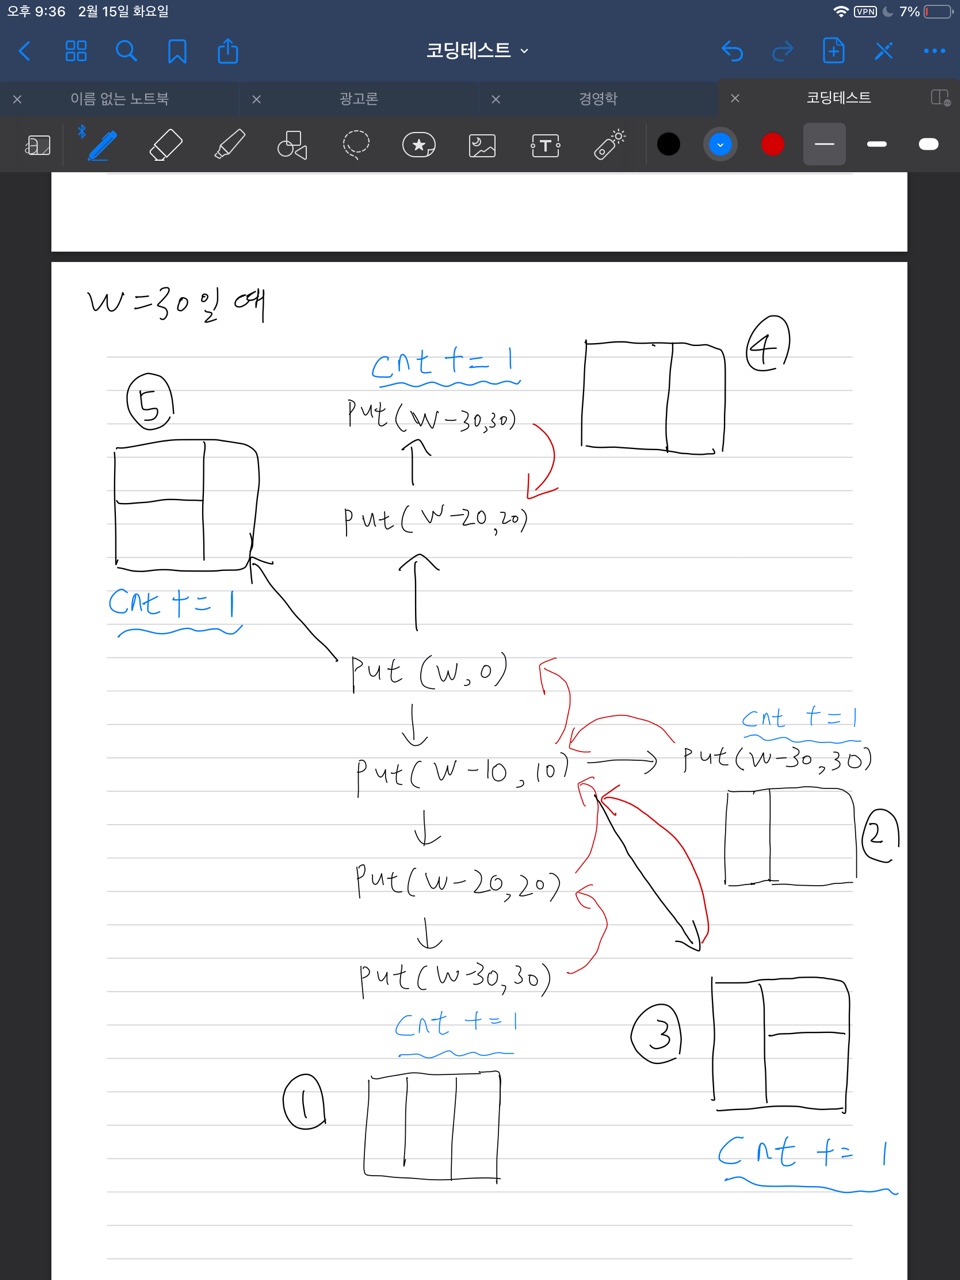 오후 9:36 2월 15일 화요일
VPN 7%
코딩테스트
이름 없는 노트북
광고론
경영학
코딩테스트
T
W=30일 때
④
cnt += 1
⑤
Put(W-30,30)
Put(W-20,20)
cnt += 1
Put(W,0)
cnt += 1
Put(W-10,10)
Put(W-30,30)
②
Put(W-20,20)
Put(W-30,30)
cnt += 1
③
①
cnt += 1